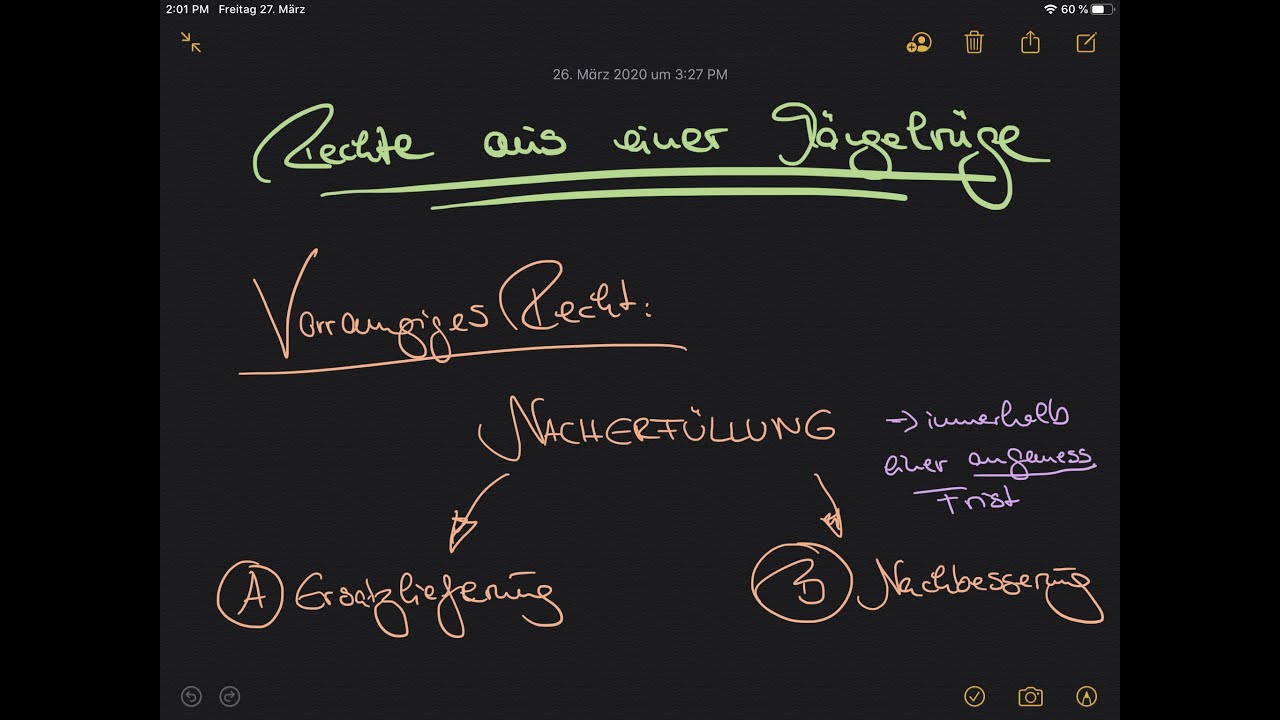 2:01 PM Freitag 27. März 60 %
26. März 2020 um 3:27 PM
Rechte aus einer Mängelrüge
Vorrangiges Recht:
NACHERFÜLLUNG
→ innerhalb
einer angemess
Frist
A Ersatzlieferung
B Nachbesserung